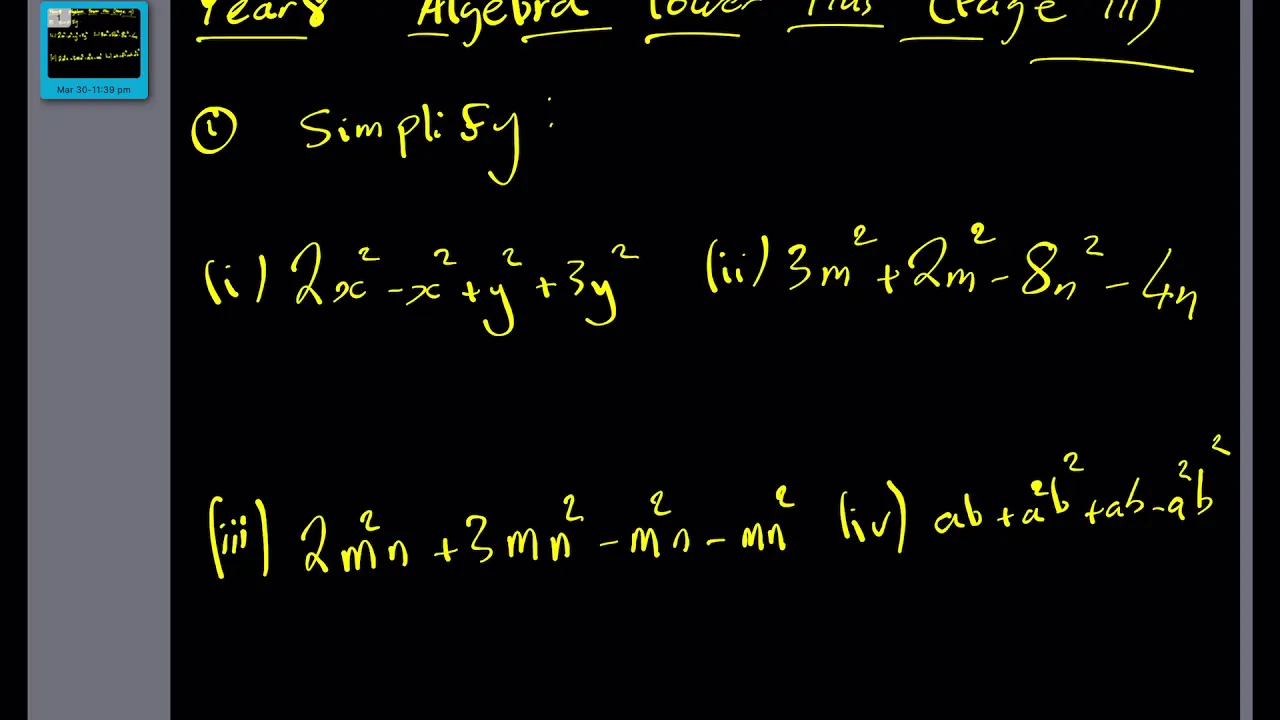 Mar 30-11:39 pm
Year 8 Algebra Power Plus (Page 111)
① Simplify:
(i) 2x² - x² + y² + 3y² (ii) 3m² + 2m² - 8n² - 4n
(iii) 2m²n + 3mn² - m²n - mn² (iv) ab + a²b² + ab - a²b²